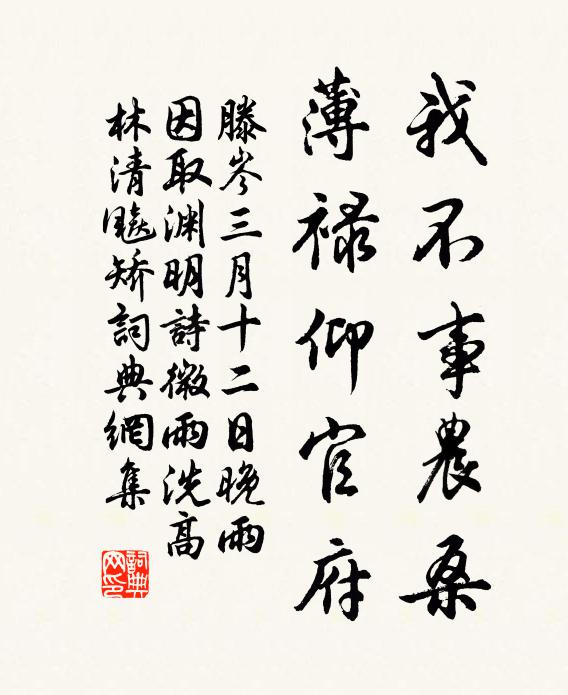 我不事農桑
薄祿仰官府
滕岑三月十二日晚雨
因取淵明詩微雨洗高
林清飇矯詞典網集
詞典網印